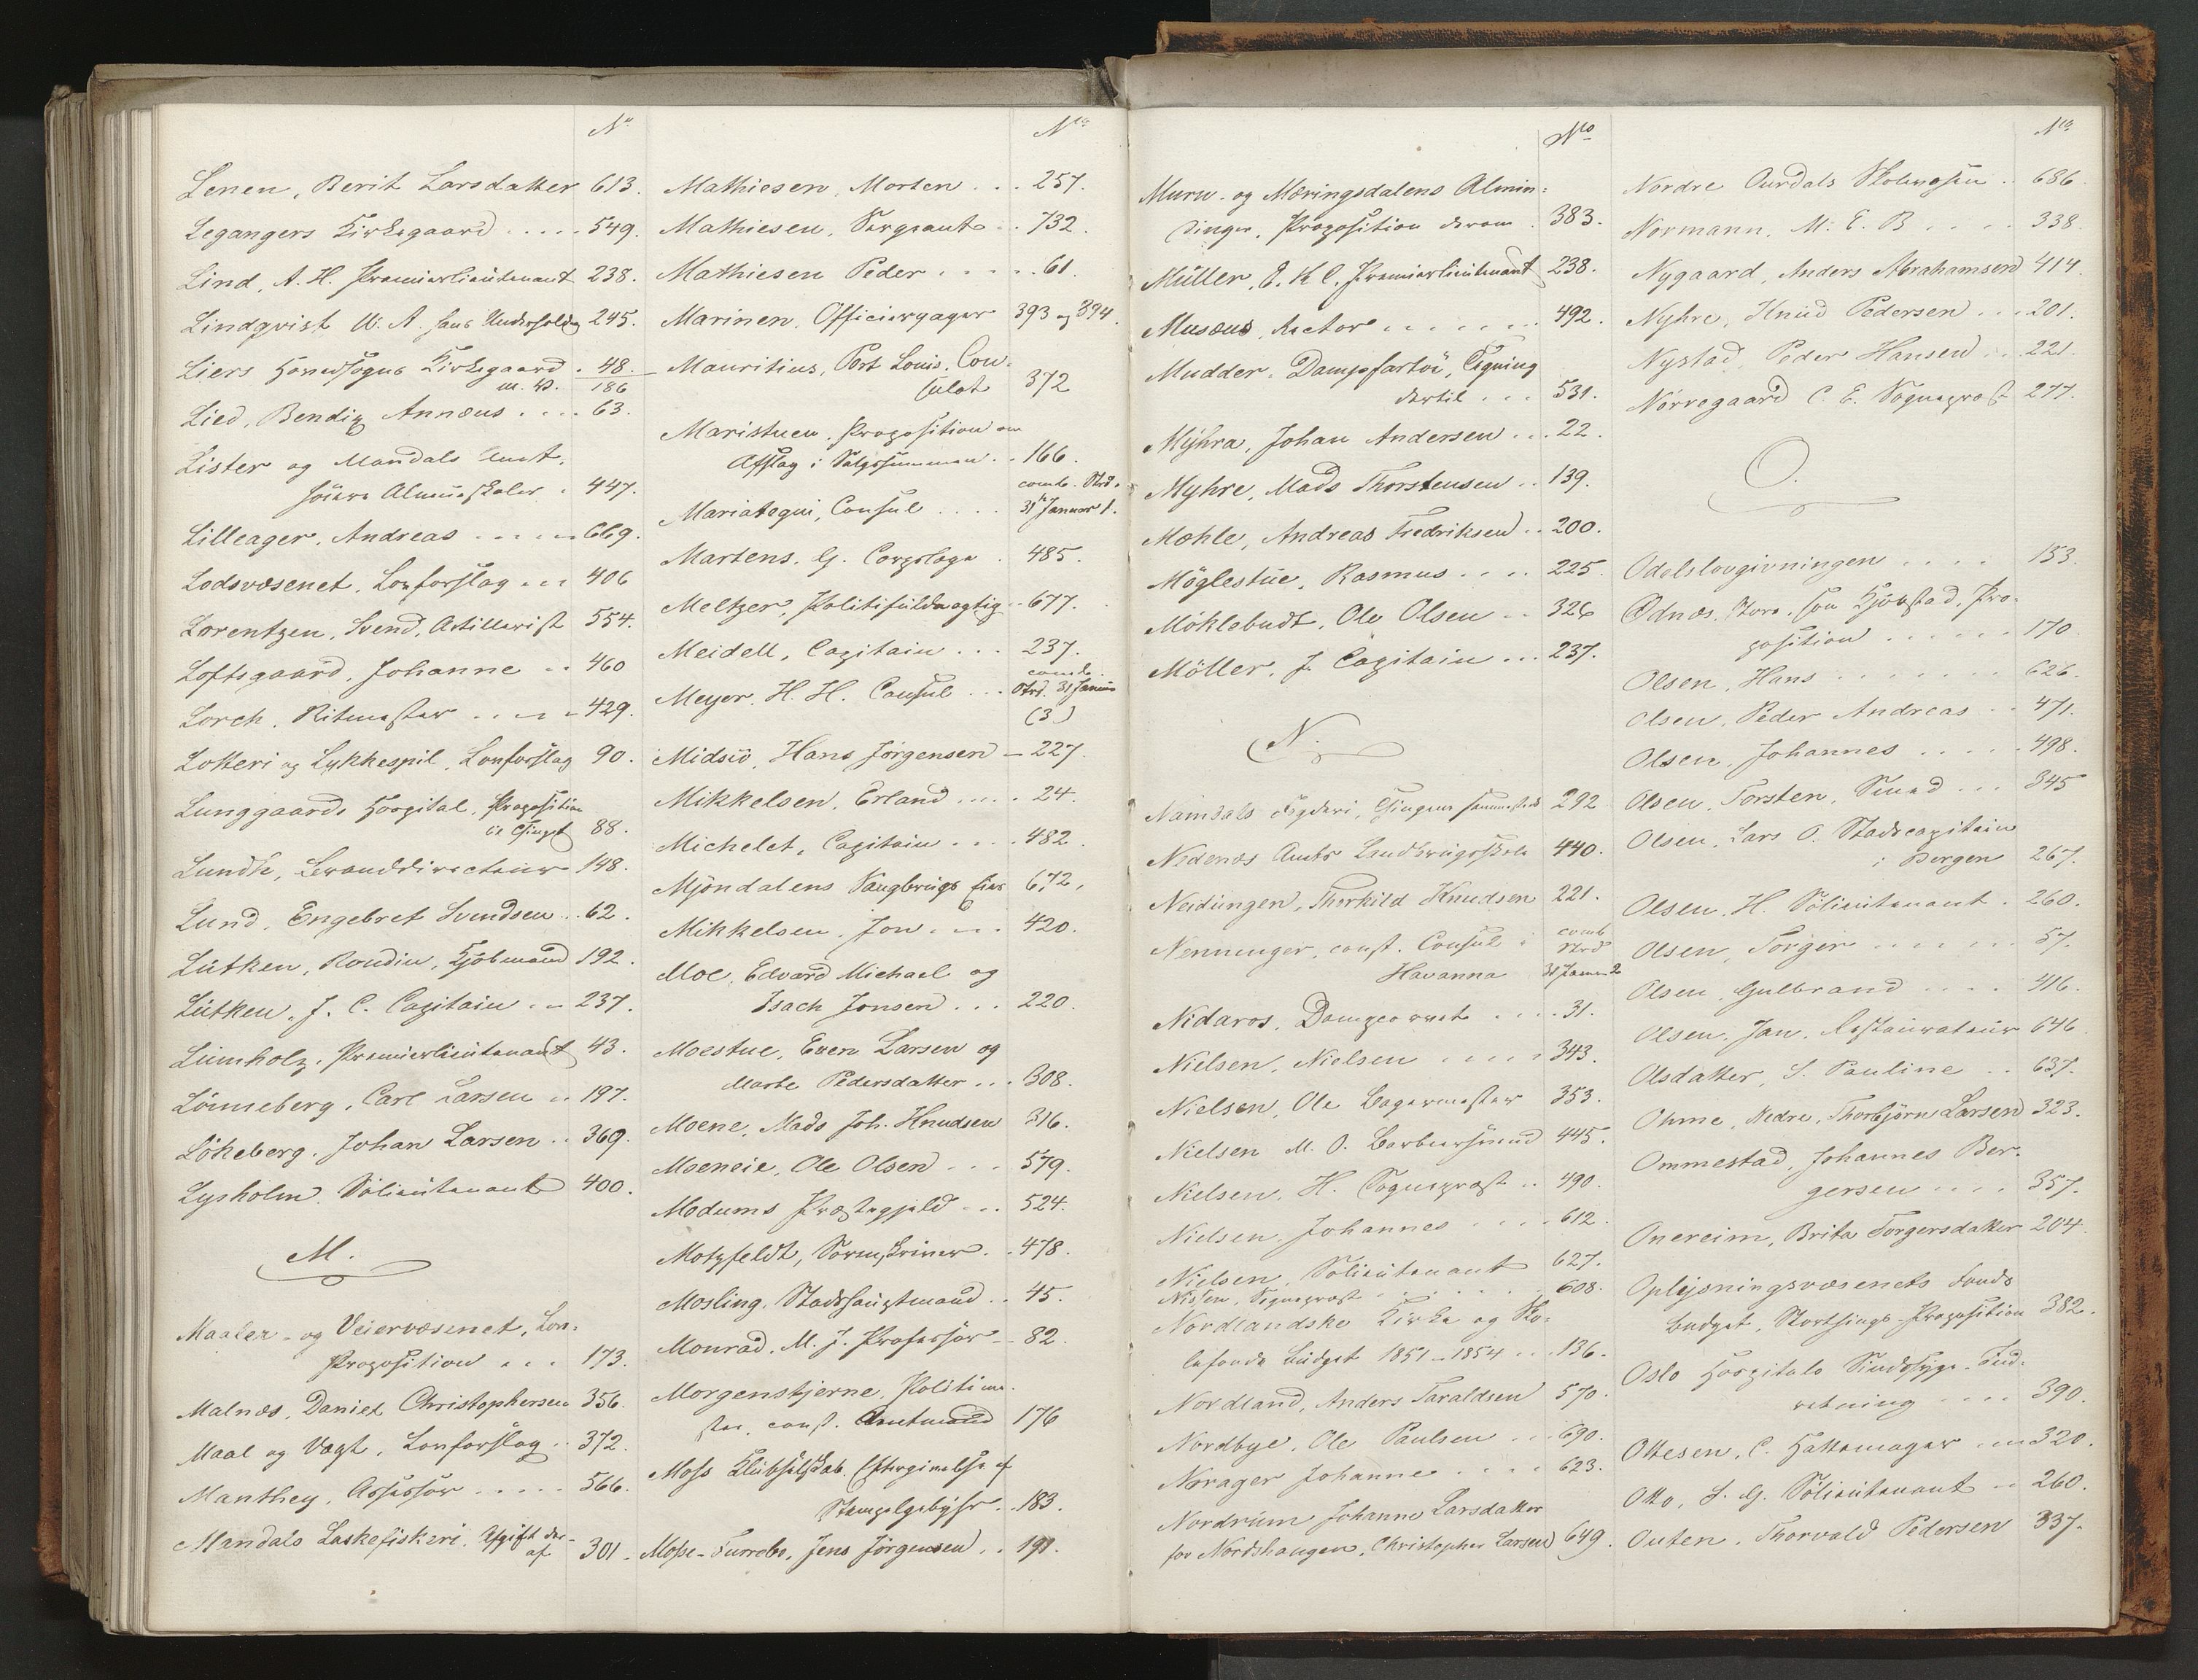 No
Lenen, Berit Larsdatter 613.
Legangers Kirkegaard ..... 549.
Lind, A. H. Premierlieutenant 238.
Lindqvist U. A. hans Underholdg 245.
Liers Hovedsogns Kirkegaard . 48.
m. v. 186
Lied, Bendix Annæus .... 63.
Lister og Mandals Amt,
høiere Almueskoler . 447.
Lilleager, Andreas ..... 669.
Lodsvæsenet, Lovforslag ... 406
Lorentzen, Svend, Artillerist 554.
Loftsgaard, Johanne .. 460
Lorch, Ritmester ..... 429.
Lotteri og Lykkespil, Lovforslag 90.
Lunggaards Hospital, Proposition
til Thinget 88.
Lundh, Branddirecteur 148.
Lund, Engebret Svendsen .. 62.
Lütken, Rondin, Kjøbmand 192.
Lütken, J. C. Capitain ... 237.
Lumholz, Premierlieutenant 43.
Lönneberg, Carl Larsen .. 197.
Lökeberg, Johan Larsen .. 369.
Lysholm, Sölieutenant 400.
M.
Maaler- og Veiervæsenet, Lov-
Proposition ... 173.
Malnæs, Daniel Christophersen 356.
Maal og Vægt, Lovforslag .. 372.
Manthey, Assessor ..... 566.
Mandals Laxefiskeri, Afgift der-
af 301.
No
Mathiesen, Morten ... 257.
Mathiesen, Sergeant .. 732.
Mathiesen Peder ..... 61.
Marinen, Officiersgager 393 og 394.
Mauritius, Port Louis, Con-
sulat 372
Maristuen, Proposition om
Afslag i Salgssummen .. 166.
Mariategui, Consul .... comb. Strd.
31te Januar 1.
Martens, G. Corpslæge . 485.
Meltzer, Politifuldmægtig .. 677.
Meidell, Capitain ... 237.
Meyer, H. H. Consul ... comb.
Strd. 31 Januar
(3.)
Midsiö, Hans Jörgensen - 227.
Mikkelsen, Erland ..... 24.
Michelet, Capitain .... 482.
Mjöndalens Saugbrugs Eier 672.
Mikkelsen, Jon .... 420.
Moe, Edvard Michael og
Isach Jonsen ... 220.
Moestue, Even Larsen og
Marte Pedersdatter ... 308.
Moene, Mads Joh. Knudsen 316.
Moeneie, Ole Olsen ... 579.
Modums Præstegjeld ... 524.
Motzfeldt, Sorenskriver .. 478.
Mosling, Stadshauptmand .. 45.
Monrad, M. J. Professor .. 82.
Morgenstjerne, Politime-
ster, const. Amtmand 176
Moss Klubselskab, Eftergivelse af
Stempelgebyhr .. 183.
Mosse-Furrebo, Jens Jörgensen .. 191.
No
Muru- og Mæringsdalens Almin-
dinger, Proposition derom . 383.
Müller, E. K. C. Premierlieutenant 238.
Musæus, Rector ....... 492.
Mudder-Dampfartöi, Tegning
dertil ... 531.
Mÿhra, Johan Andersen ... 22.
Myhre, Mads Thorstensen .. 139.
Mæhle, Andreas Fredriksen .. 200.
Möglestue, Rasmus .... 225.
Möklebudt, Ole Olsen .. 326
Möller, J. Capitain ... 237.
N.
Namdals Fogderi, Thingene sammesteds 292
Nedenæs Amts Landbrugsskole 440.
Neidüngen, Thorkild Knudsen 221.
Nenninger, const. Consul i comb
Strd
Havanna 31 Januar 2
Nidaros, Dampcorvet .... 31.
Nielsen, Nielsen ..... 343.
Nielsen, Ole Bagermester 353.
Nielsen M. O. Barbeersvend 445.
Nielsen, H. Sognepræst .. 490.
Nielsen, Johannes .... 612.
Nielsen, Sölieutenant 627.
Nissen, Sognepræst ....... 608.
Nordlandske Kirke og Sko-
lefonds Budget 1851-1854 ... 136.
Nordland, Anders Taraldsen 570.
Nordbye, Ole Paulsen ... 690.
Norager Johanne .... 623.
Nordrüm Johanne Larsdatter
for Nordshaugen, Christopher Larsen 649.
No
Nordre Aurdals Skolevæsen .. 686.
Normann, M. E. B .... 338.
Nygaard, Anders Abrahamsen 414.
Nyhre, Knud Pedersen ... 201.
Nystad, Peder Hansen ... 221.
Nörregaard C. E. Sognepræst 277.
O.
Odelslovgivningen .... 153.
Odnæs, Store, som Kjöbstad, Pro-
position ...... 170.
Olsen, Hans ....... 626.
Olsen, Peder Andreas .. 471.
Olsen, Johannes ..... 498.
Olsen, Torsten, Smed ... 345
Olsen, Lars O. Stadscapitain
i Bergen 267.
Olsen, H. Sölieutenant . 260.
Olsen, Torger ...... 57.
Olsen, Gulbrand .... 416.
Olsen, Jan, Restaurateur 646
Olsdatter, S. Pauline .. 637.
Ohme, Nedre, Thorbjörn Larsen 323.
Ommestad, Johannes Ber-
gersen .... 357.
Onereim, Brita Torgersdatter 204.
Oplysningsvæsenets Fonds
Budget, Storthings-Proposition 382.
Oslo Hospitals Sindssyge-Ind-
retning .... 390.
Ottesen, C. Hattemager .... 320.
Otto, S. G. Sölieutenant .. 260.
Outen, Thorvald Pedersen 337.